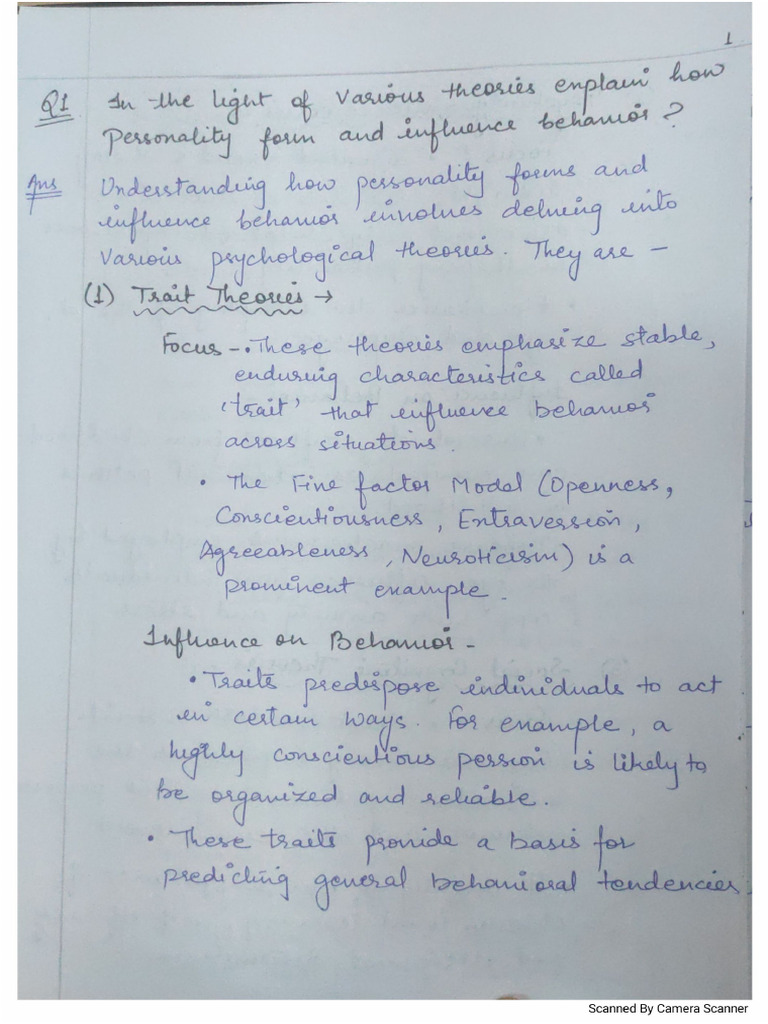 1
Q1 In the light of various theories explain how
Personality form and influence behavior?
Ans Understanding how personality forms and
influence behavior involves delving into
various psychological theories. They are -
(1) Trait Theories →
Focus - • These theories emphasize stable,
enduring characteristics called
'trait' that influence behavior
across situations.
• The Five factor Model (Openness,
Conscientiousness, Extraversion,
Agreeableness, Neuroticism) is a
prominent example.
Influence on Behavior -
• Traits predispose individuals to act
in certain ways. For example, a
highly conscientious person is likely to
be organized and reliable.
• These traits provide a basis for
predicting general behavioral tendencies.
Scanned By Camera Scanner